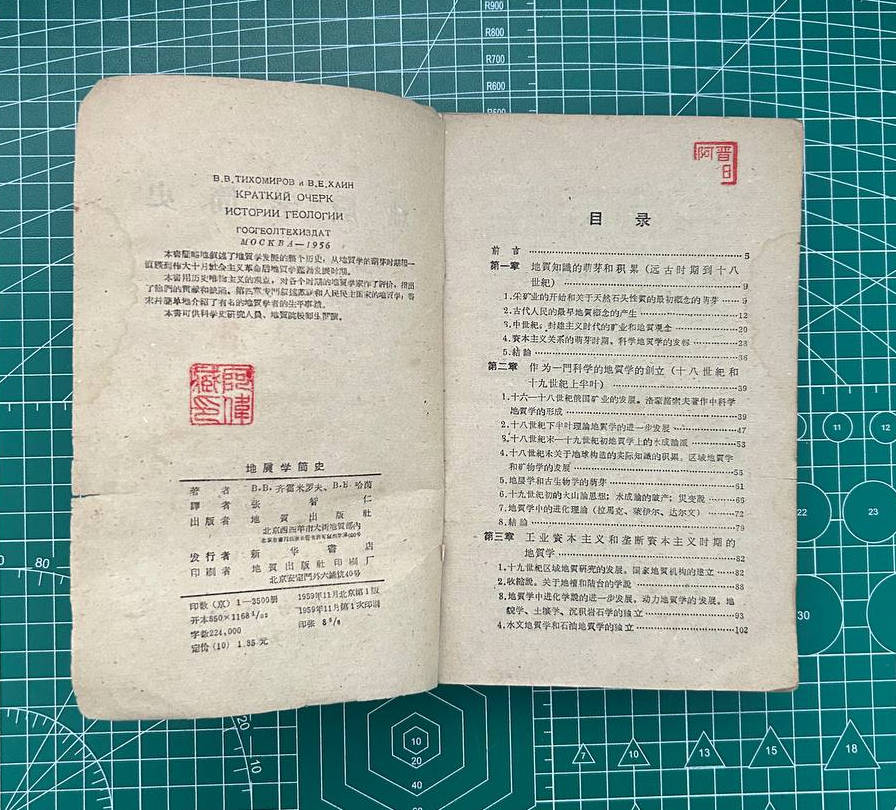 В.В.ТИХОМИРОВ и В.Е.ХАИН
КРАТКИЙ ОЧЕРК
ИСТОРИИ ГЕОЛОГИИ
ГОСГЕОЛТЕХИЗДАТ
МОСКВА—1956
本書簡略地叙述了地質学发展的整个历史，从地質学的萌芽时期一
直談到伟大十月社会主义革命后地質学蓬勃发展时期。
本書用历史唯物主义的观点，对各个时期的地質学家作了評价，指出
了他們的貢献和缺陷。
本書可供科学史研究人員、地質院校师生閱讀。
阿偉
藏印
地質学簡史
著者 В.В.齐霍米罗夫、В.Е.哈茵
譯者 张智仁
出版者 地質出版社
北京西四羊市大街地質部內
发行者 新华書店
印刷者 地質出版社印刷厂
北京安定門外六鋪炕40号
印数（京）1—3500册 1959年11月北京第1版
开本850×1168 1/32 1959年11月第1次印刷
字数224,000 印张 8 5/8
定价（10）1.35元
阿晋日
目录
前言 5
第一章 地質知識的萌芽和积累（远古时期到十八
世紀） 9
1.采矿业的开始和关于天然石头性質的最初概念的萌芽 9
2.古代人民的最早地質概念的产生 12
3.中世紀：封建主义时代的矿业和地質观念 20
4.資本主义关系的萌芽时期。科学地質学的发端 23
5.結論 36
第二章 作为一門科学的地質学的創立（十八世紀和
十九世紀上半叶） 39
1.十六—十八世紀俄国矿业的发展。洛蒙諾索夫著作中科学
地質学的形成 39
2.十八世紀下半叶理論地質学的进一步发展 47
3.十八世紀末—十九世紀初地質学上的水成論派 53
4.十八世紀末关于地球构造的实际知識的积累。区域地質学
和矿物学的发展 55
5.地层学和古生物学的萌芽 61
6.十九世紀初的火山論思想；水成論的破产；灾变說 65
7.地質学中的进化理論（拉馬克、萊伊尔、达尔文） 72
8.結論 79
第三章 工业資本主义和垄断資本主义时期的
地質学 82
1.十九世紀区域地質研究的发展。国家地質机构的建立 82
2.收縮說。关于地槽和陆台的学說 88
3.地質学中进化学說的进一步发展。动力地質学的发展。地
貌学、土壤学、沉积岩石学的独立 93
4.水文地質学和石油地質学的独立 102
R900
R800
R700
R600
11
12
22
23
30
80
20
10
10
20
40
7
10
13
15
18